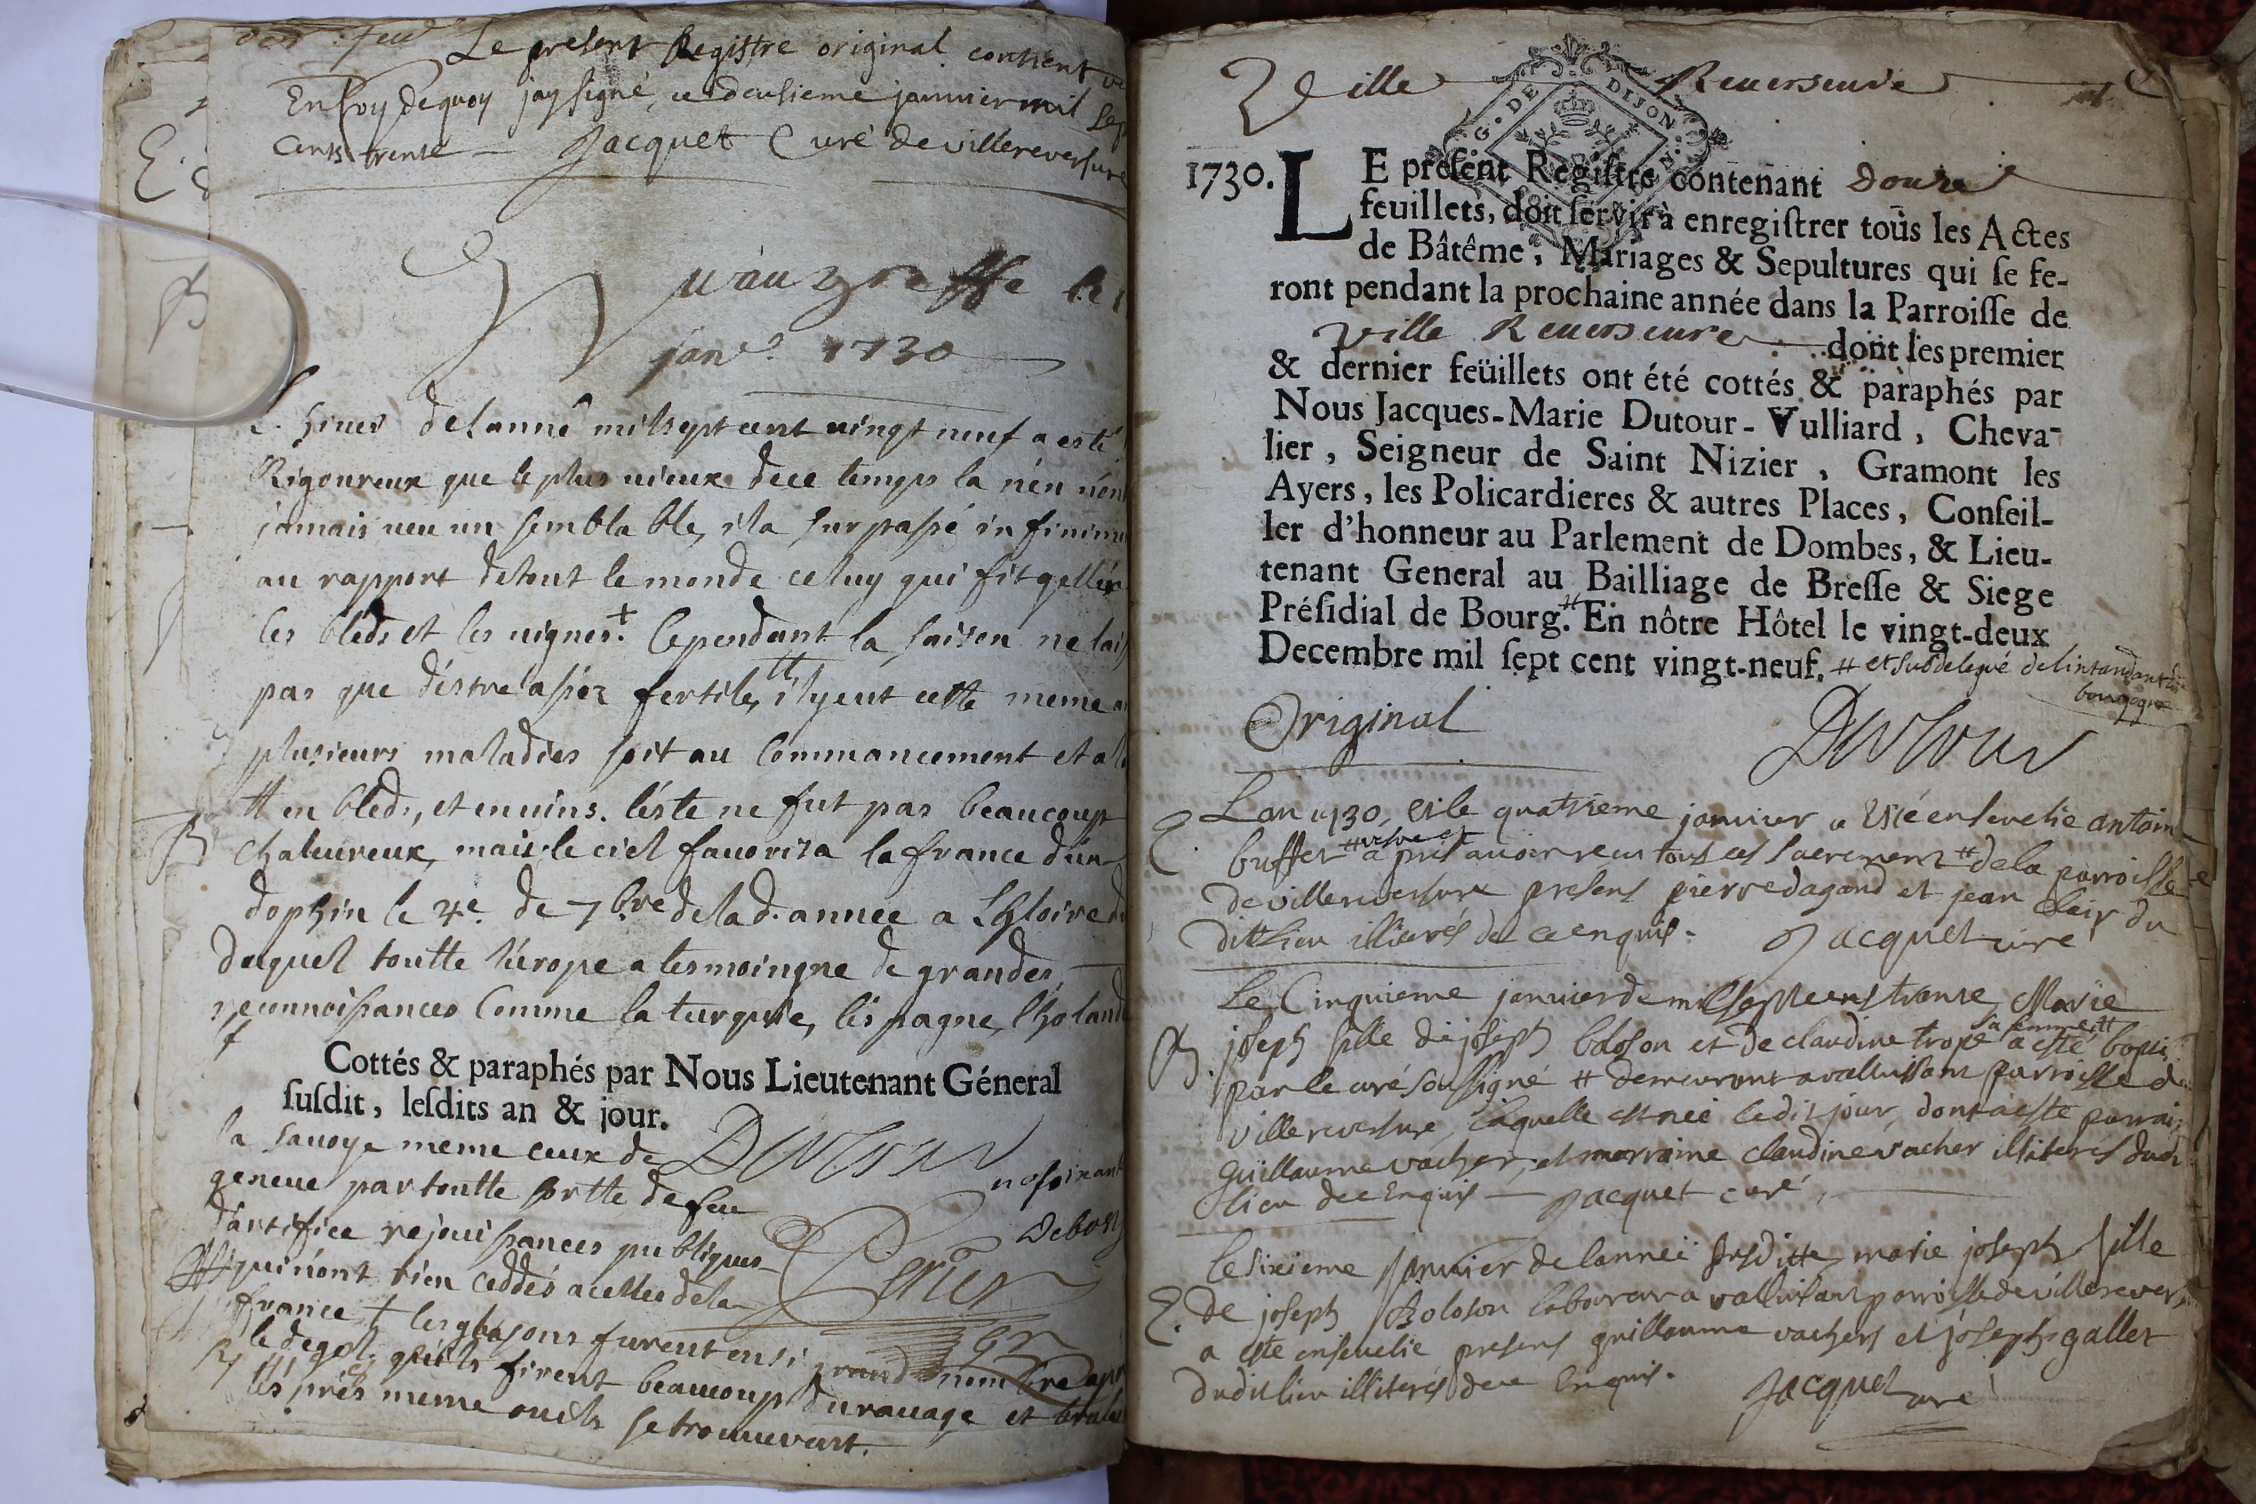 Le present Registre original contient
En foy de quoy jay signé, ce deusieme janvier mil sep
cents trente Jacquet Curé de villereversure
janv. 1730
hiver de lanné mil sept cent vingt neuf a esté
Rigoureux que le plus vieux de ce temps la n'en n'ont
jamais veu un semblable, il a surpassé infinim
au rapport de tout le monde celuy qui fit geller
les bleds et les vignes. + Cependant la saison ne lais
pas que d'éstre assez fertile, # il y eut cette meme
plusieurs maladies soit au commancement et a l
# en bleds, et en vins. l'éste ne fut pas beaucoup
chaleureux, mais le ciel favoriza la france d'un
dophin le 4e. de 7bre de la d. annee a L gloire
duquel toutte l'érope a tesmoingne de grandes
reconnoissances Comme la turquie, l'espagne, l'holand
Cottés & paraphés par Nous Lieutenant Géneral
susdit, lesdits an & jour.
la savoye meme ceux de
geneve par toutte sortte de feu
d'artifice rejouissances publiques
qui n'ont rien ceddés a celles de la
france + les glasons furent en si grand nombre
le degel, qu'ils firent beaucoup du ravage et
les prés meme ou ils se trouverent.
Ville Reversure
G. DE DIJON
1730. LE présent Registre contenant douze
feuillets, doit servir à enregistrer tous les Actes
de Bâtême, Mariages & Sepultures qui se fe-
ront pendant la prochaine année dans la Parroisse de
Ville Reversure dont les premier
& dernier feüillets ont été cottés & paraphés par
Nous Jacques-Marie Dutour-Vulliard, Cheva-
lier, Seigneur de Saint Nizier, Gramont les
Ayers, les Policardieres & autres Places, Conseil-
ler d'honneur au Parlement de Dombes, & Lieu-
tenant General au Bailliage de Bresse & Siege
Présidial de Bourg. # En nôtre Hôtel le vingt-deux
Decembre mil sept cent vingt-neuf. # et subdelegué de l'intandant
bourgogne
Original
Dutour
Lan 1730, et le quatrieme janvier a esté ensevelie antoin
buffet # apres avoir receu tous ces sacrements # de la parroisse
de villereversure presens pierre dagand et jean Clair du
dit lieu illiterés de ce enquis. Jacquet curé
Le Cinquieme janvier de mil sept cens trente, Marie
sa femme #
joseph fille de joseph boloson et de claudine trope a esté bapti
par le curé soussigné # demeurant a valluissant parroisse de
villereversure, laquelle est née ledit jour, dont a este parrai
guillaume vacher, et marraine claudine vacher illiterés dudi
lieu de ce Enquis Jacquet curé,
Le sixieme Janvier de lanneé susditte, marie joseph fille
de joseph Boloson laboureur a valluisant parroisse de villerever
a este ensevelie presens guillaume vachers et joseph gallet
dudit lieu illiterés de ce Enquis. Jacquet curé